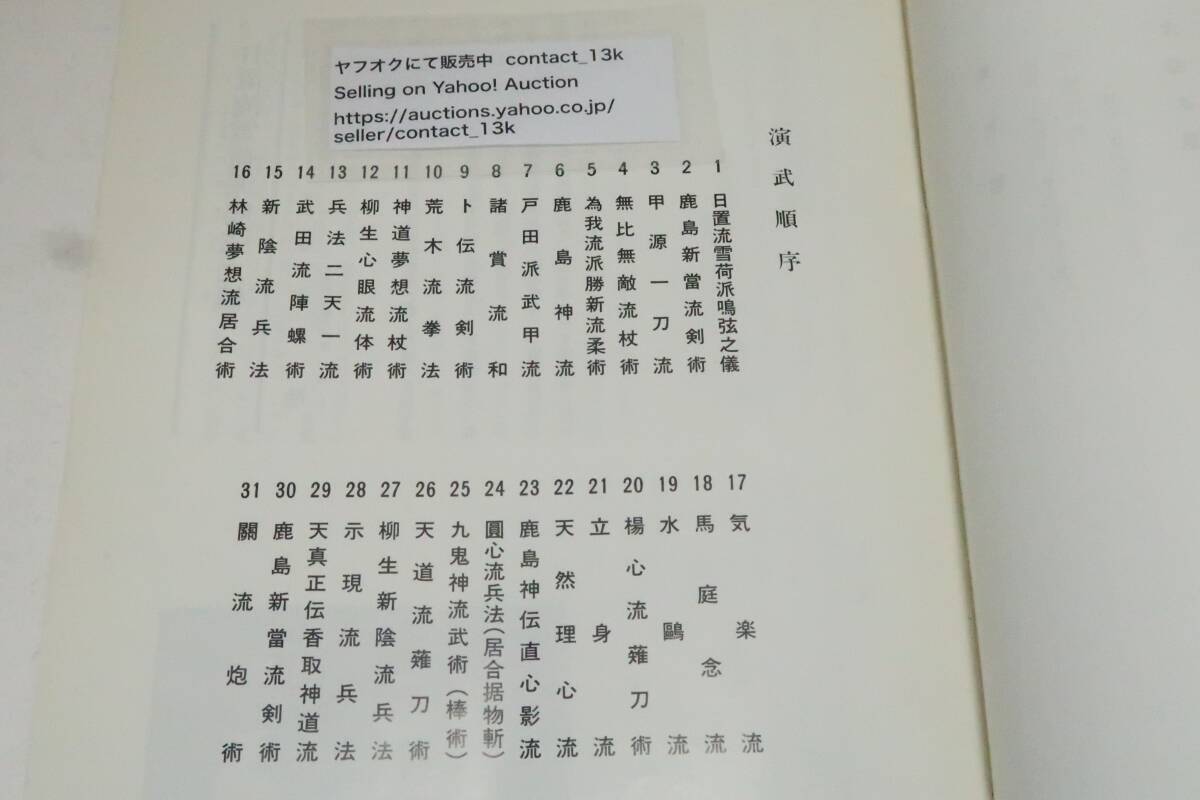 ヤフオクにて販売中 contact_13k
Selling on Yahoo! Auction
https://auctions.yahoo.co.jp/
seller/contact_13k
演武順序
1 日置流雪荷派鳴弦之儀
2 鹿島新當流剣術
3 甲源一刀流
4 無比無敵流杖術
5 為我流派勝新流柔術
6 鹿島神流
7 戸田派武甲流
8 諸賞流和
9 卜伝流剣術
10 荒木流拳法
11 神道夢想流杖術
12 柳生心眼流体術
13 兵法二天一流
14 武田流陣螺術
15 新陰流兵法
16 林崎夢想流居合術
17 気楽流
18 馬庭念流
19 水鷗流
20 楊心流薙刀術
21 立身流
22 天然理心流
23 鹿島神伝直心影流
24 圓心流兵法(居合据物斬)
25 九鬼神流武術(棒術)
26 天道流薙刀術
27 柳生新陰流兵法
28 示現流兵法
29 天真正伝香取神道流
30 鹿島新當流剣術
31 關流炮術